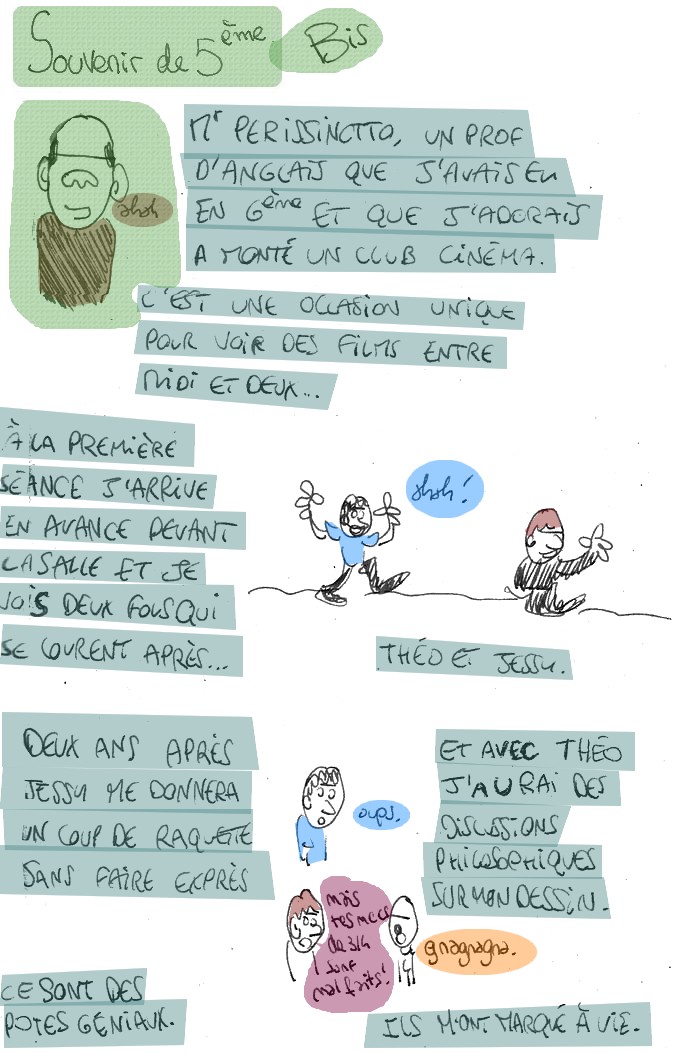 Souvenir de 5ème Bis
Mr PERISSINOTTO, UN PROF
D'ANGLAIS QUE J'AVAIS EU
EN 6ème ET QUE J'ADORAIS
A MONTÉ UN CLUB CINÉMA.
ohoh
C'EST UNE OCCASION UNIQUE
POUR VOIR DES FILMS ENTRE
MIDI ET DEUX...
À LA PREMIÈRE
SÉANCE J'ARRIVE
EN AVANCE DEVANT
LA SALLE ET JE
VOIS DEUX FOUS QUI
SE COURENT APRÈS...
ohoh!
THÉO ET JESSU.
DEUX ANS APRÈS
JESSU ME DONNERA
UN COUP DE RAQUETTE
SANS FAIRE EXPRÈS
oups.
ET AVEC THÉO
J'AURAI DES
DISCUSSIONS
PHILOSOPHIQUES
SUR MON DESSIN.
mais
tes mecs
de 3/4
sont
mal faits!
gnagnagna.
CE SONT DES
POTES GÉNIAUX.
ILS M'ONT MARQUÉ À VIE.